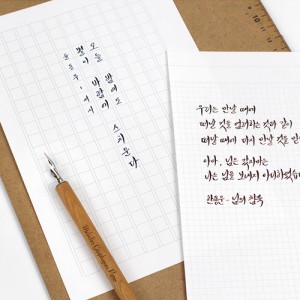 오늘 밤에도
별이 바람에 스치운다
윤동주, 서시
우리는 만날 때에
떠날 것을 염려하는 것과 같이
떠날 때에 다시 만날 것을
아아, 님은 갔지마는
나는 님을 보내지 아니하였습
한용운 - 님의 침묵
10